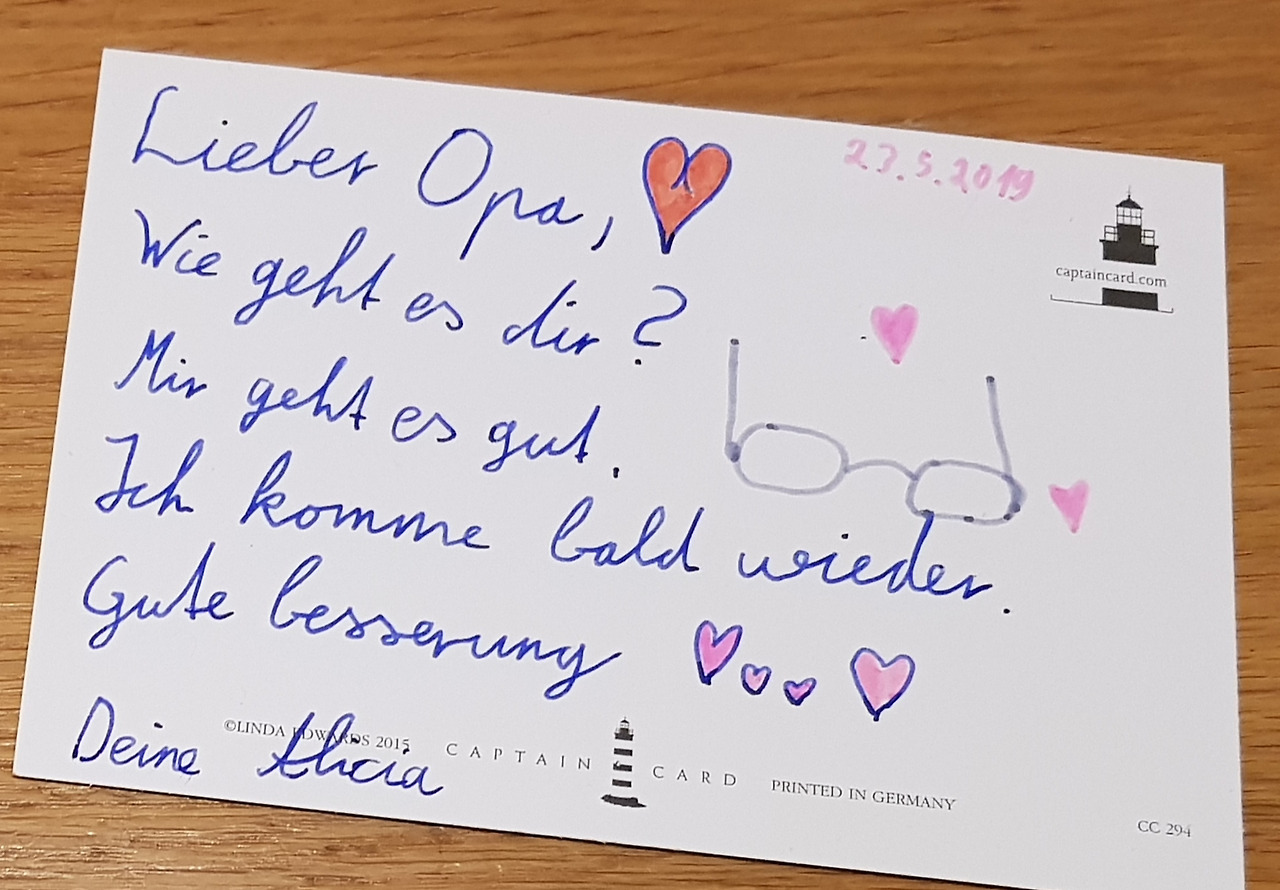 Lieber Opa,
23.5.2019
captaincard.com
Wie geht es dir?
Mir geht es gut.
Ich komme bald wieder.
Gute besserung
Deine Alicia
©LINDA EDWARDS 2015
CAPTAIN CARD
PRINTED IN GERMANY
CC 294